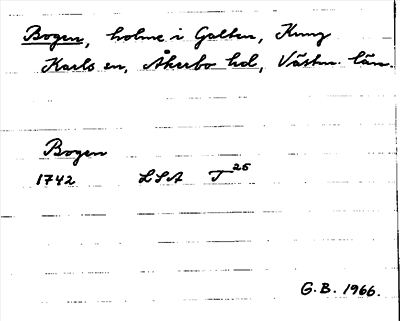 Bogen, holme i Galten, Kung
Karls sn, Åkerbo hd, Västm. län.
Bogen
1742 LSA T 25
G.B. 1966.